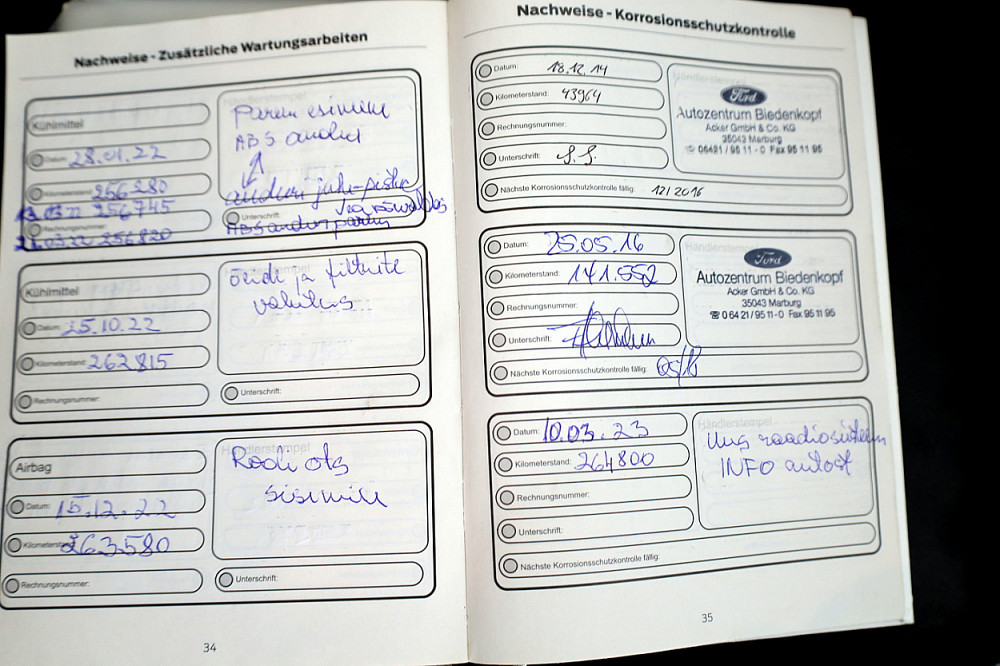 Nachweise - Zusätzliche Wartungsarbeiten
Kühlmittel
Datum: 28.01.22
Kilometerstand: 256280
256745
Rechnungsnummer:
256820
Händlerstempel
Parem esimene
ABS andur
Unterschrift:
Kühlmittel
Datum: 25.10.22
Kilometerstand: 262815
Rechnungsnummer:
Händlerstempel
õlide ja filtrite
vahetus
Unterschrift:
Airbag
Datum: 15.12.22
Kilometerstand: 263580
Rechnungsnummer:
Händlerstempel
Rooli ots
sisemine
Unterschrift:
34
Nachweise - Korrosionsschutzkontrolle
Datum: 18.12.14
Kilometerstand: 43964
Rechnungsnummer:
Unterschrift:
Nächste Korrosionsschutzkontrolle fällig: 12/2016
Händlerstempel
Ford
Autozentrum Biedenkopf
Acker GmbH & Co. KG
35043 Marburg
☎ 06421/95 11-0 Fax 95 11 95
Datum: 25.05.16
Kilometerstand: 141.552
Rechnungsnummer:
Unterschrift:
Nächste Korrosionsschutzkontrolle fällig: 05/18
Händlerstempel
Ford
Autozentrum Biedenkopf
Acker GmbH & Co. KG
35043 Marburg
☎ 0 64 21/95 11-0 Fax 95 11 95
Datum: 10.03.23
Kilometerstand: 264800
Rechnungsnummer:
Unterschrift:
Nächste Korrosionsschutzkontrolle fällig:
Händlerstempel
Uus raadiosüsteem
INFO autost
35